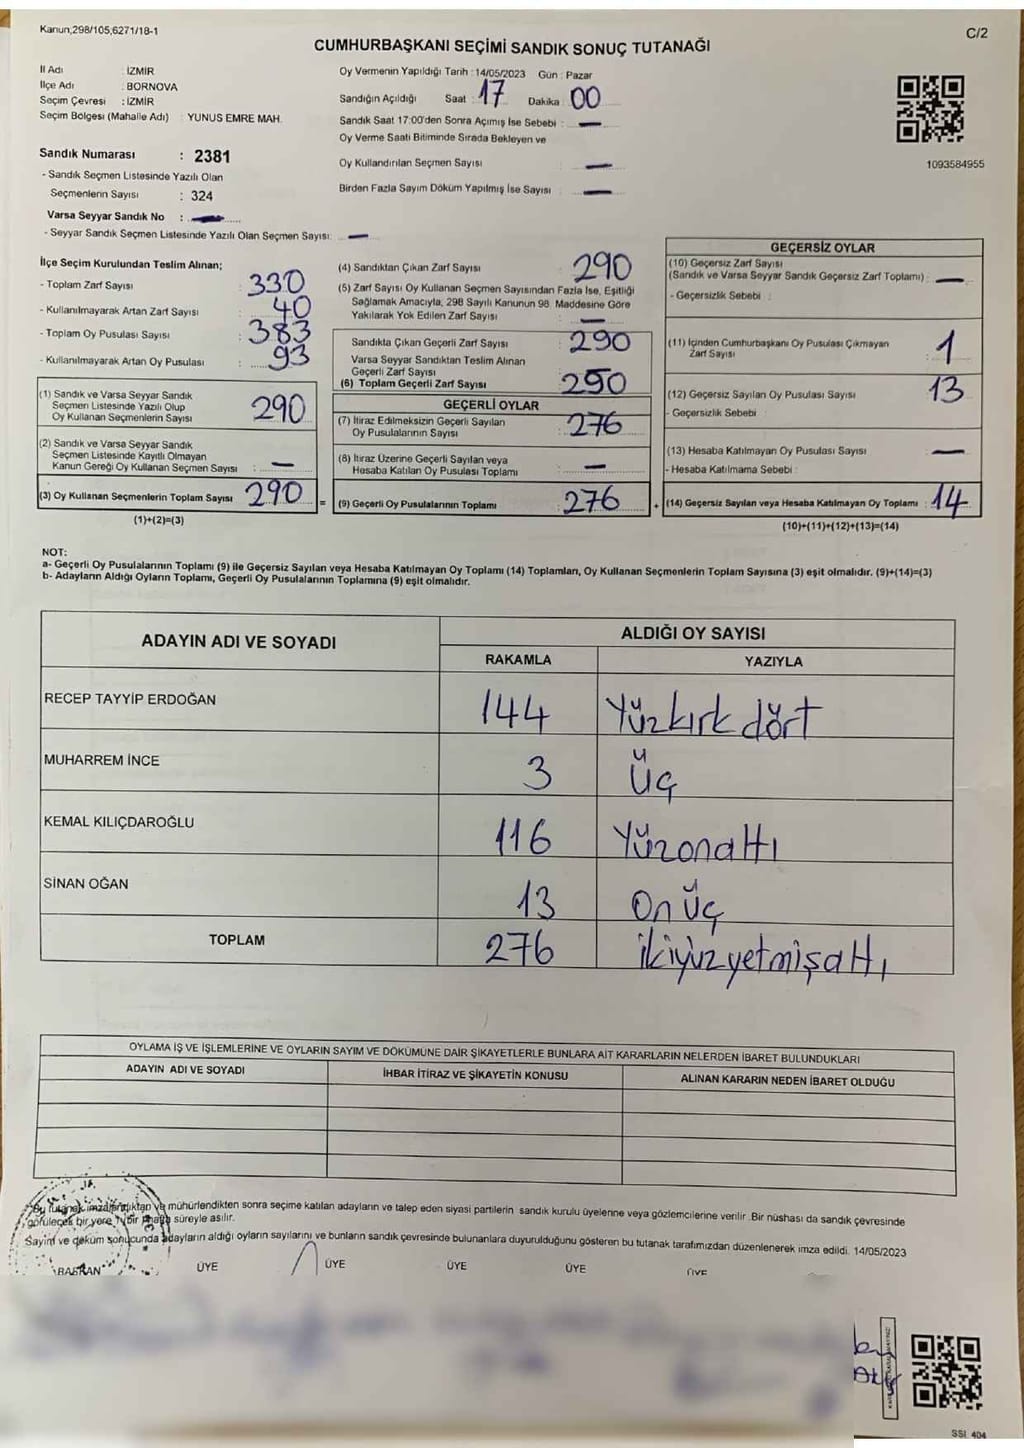 Kanun,298/105,6271/18-1
C/2
CUMHURBAŞKANI SEÇİMİ SANDIK SONUÇ TUTANAĞI
İl Adı : İZMİR
İlçe Adı : BORNOVA
Seçim Çevresi : İZMİR
Seçim Bölgesi (Mahalle Adı) : YUNUS EMRE MAH.
Oy Vermenin Yapıldığı Tarih : 14/05/2023 Gün : Pazar
Sandığın Açıldığı Saat : 17 Dakika : 00
Sandık Saat 17:00'den Sonra Açımış İse Sebebi : —
Oy Verme Saati Bitiminde Sırada Bekleyen ve
Oy Kullandırılan Seçmen Sayısı : —
Birden Fazla Sayım Döküm Yapılmış İse Sayısı : —
1093584955
Sandık Numarası : 2381
- Sandık Seçmen Listesinde Yazılı Olan
Seçmenlerin Sayısı : 324
Varsa Seyyar Sandık No : —
- Seyyar Sandık Seçmen Listesinde Yazılı Olan Seçmen Sayısı: —
İlçe Seçim Kurulundan Teslim Alınan;
- Toplam Zarf Sayısı : 330
- Kullanılmayarak Artan Zarf Sayısı : 40
- Toplam Oy Pusulası Sayısı : 383
- Kullanılmayarak Artan Oy Pusulası : 93
(1) Sandık ve Varsa Seyyar Sandık
Seçmen Listesinde Yazılı Olup
Oy Kullanan Seçmenlerin Sayısı : 290
(2) Sandık ve Varsa Seyyar Sandık
Seçmen Listesinde Kayıtlı Olmayan
Kanun Gereği Oy Kullanan Seçmen Sayısı : —
(3) Oy Kullanan Seçmenlerin Toplam Sayısı : 290 =
(1)+(2)=(3)
(4) Sandıktan Çıkan Zarf Sayısı : 290
(5) Zarf Sayısı Oy Kullanan Seçmen Sayısından Fazla İse, Eşitliği
Sağlamak Amacıyla, 298 Sayılı Kanunun 98. Maddesine Göre
Yakılarak Yok Edilen Zarf Sayısı : —
Sandıkta Çıkan Geçerli Zarf Sayısı : 290
Varsa Seyyar Sandıktan Teslim Alınan
Geçerli Zarf Sayısı :
(6) Toplam Geçerli Zarf Sayısı : 290
GEÇERLİ OYLAR
(7) İtiraz Edilmeksizin Geçerli Sayılan
Oy Pusulalarının Sayısı : 276
(8) İtiraz Üzerine Geçerli Sayılan veya
Hesaba Katılan Oy Pusulası Toplamı : —
(9) Geçerli Oy Pusulalarının Toplamı : 276 +
GEÇERSİZ OYLAR
(10) Geçersiz Zarf Sayısı
(Sandık ve Varsa Seyyar Sandık Geçersiz Zarf Toplamı) : —
- Geçersizlik Sebebi :
(11) İçinden Cumhurbaşkanı Oy Pusulası Çıkmayan
Zarf Sayısı : 1
(12) Geçersiz Sayılan Oy Pusulası Sayısı : 13
- Geçersizlik Sebebi :
(13) Hesaba Katılmayan Oy Pusulası Sayısı : —
- Hesaba Katılmama Sebebi :
(14) Geçersiz Sayılan veya Hesaba Katılmayan Oy Toplamı : 14
(10)+(11)+(12)+(13)=(14)
NOT:
a- Geçerli Oy Pusulalarının Toplamı (9) ile Geçersiz Sayılan veya Hesaba Katılmayan Oy Toplamı (14) Toplamları, Oy Kullanan Seçmenlerin Toplam Sayısına (3) eşit olmalıdır. (9)+(14)=(3)
b- Adayların Aldığı Oyların Toplamı, Geçerli Oy Pusulalarının Toplamına (9) eşit olmalıdır.
ADAYIN ADI VE SOYADI
ALDIĞI OY SAYISI
RAKAMLA YAZIYLA
RECEP TAYYİP ERDOĞAN 144 Yüzkırkdört
MUHARREM İNCE 3 Üç
KEMAL KILIÇDAROĞLU 116 Yüzonaltı
SİNAN OĞAN 13 On üç
TOPLAM 276 ikiyüzyetmişaltı
OYLAMA İŞ VE İŞLEMLERİNE VE OYLARIN SAYIM VE DÖKÜMÜNE DAİR ŞİKAYETLERLE BUNLARA AİT KARARLARIN NELERDEN İBARET BULUNDUKLARI
ADAYIN ADI VE SOYADI İHBAR İTİRAZ VE ŞİKAYETİN KONUSU ALINAN KARARIN NEDEN İBARET OLDUĞU
Bu tutanak imzalandıktan ve mühürlendikten sonra seçime katılan adayların ve talep eden siyasi partilerin sandık kurulu üyelerine veya gözlemcilerine verilir. Bir nüshası da sandık çevresinde
görülecek bir yere 1 bir hafta süreyle asılır.
Sayım ve döküm sonucunda adayların aldığı oyların sayılarını ve bunların sandık çevresinde bulunanlara duyurulduğunu gösteren bu tutanak tarafımızdan düzenlenerek imza edildi. 14/05/2023
BAŞKAN ÜYE ÜYE ÜYE ÜYE ÜYE
SSI 404